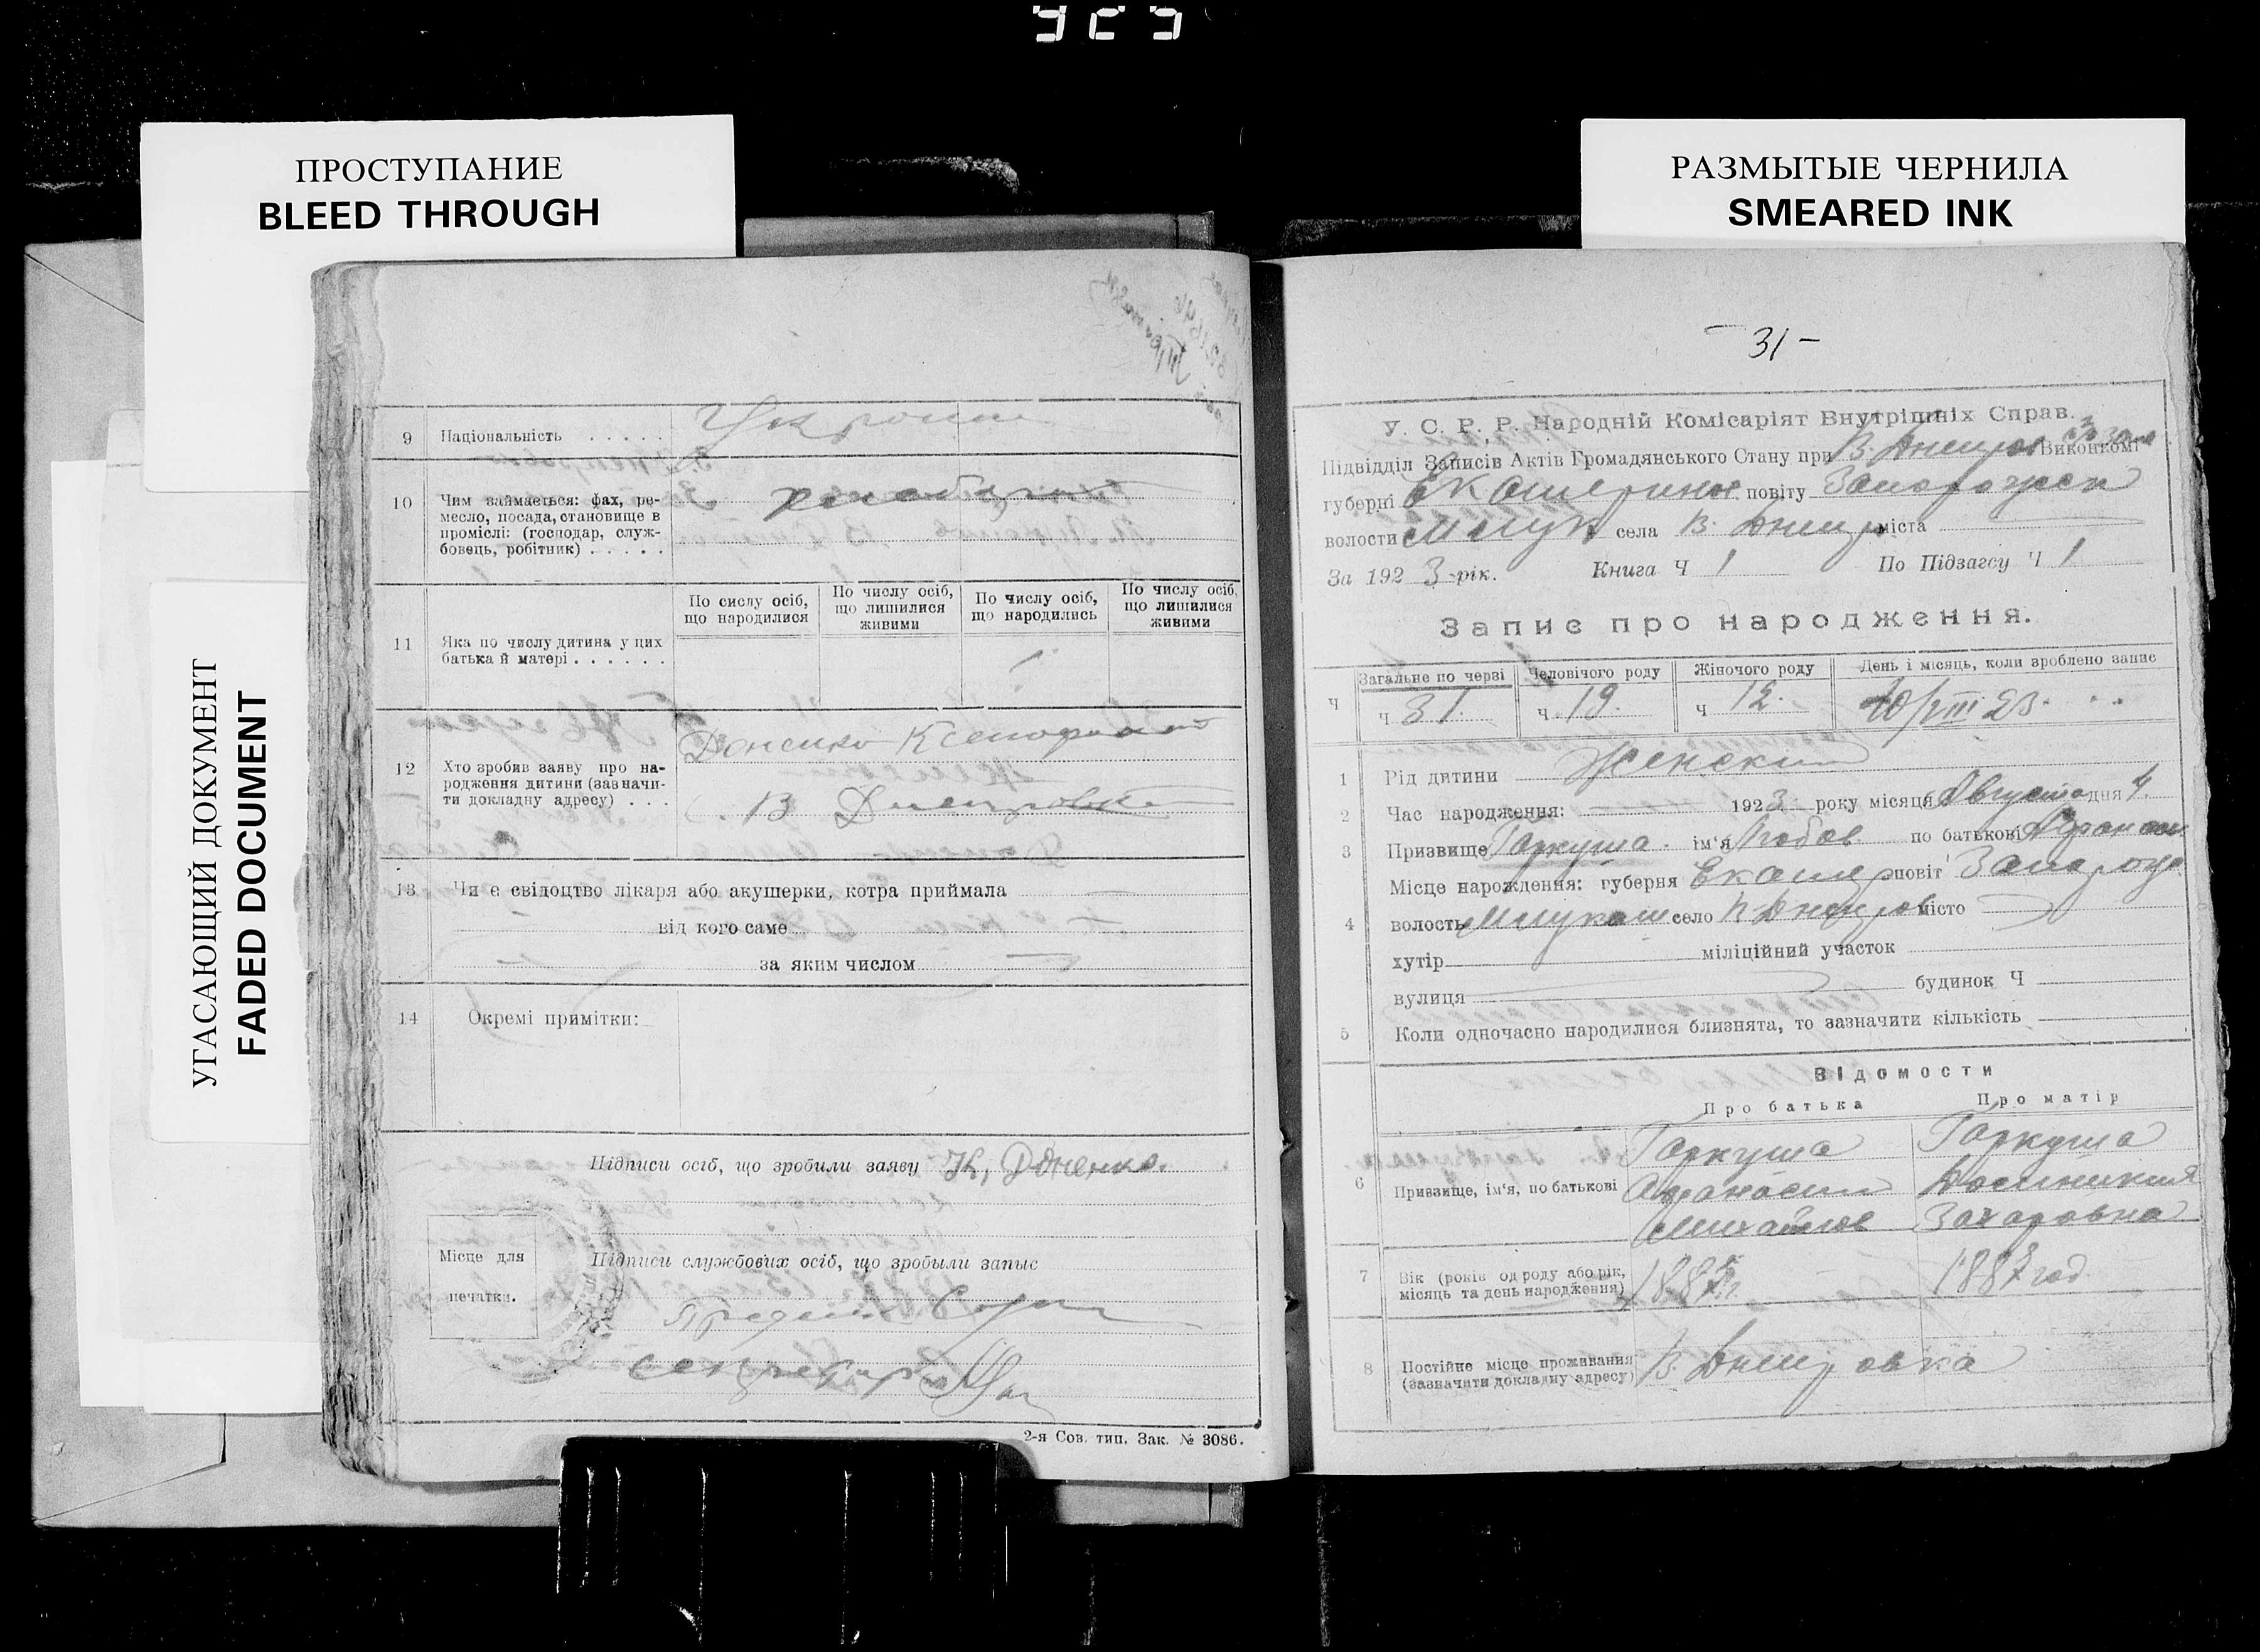 ПРОСТУПАНИЕ
BLEED THROUGH
РАЗМЫТЫЕ ЧЕРНИЛА
SMEARED INK
УГАСАЮЩИЙ ДОКУМЕНТ
FADED DOCUMENT
9 Національність
10 Чим займається: фах, ре-
месло, посада, становище в
проміслі: (господар, служ-
бовець, робітник)
хлебороб
11 Яка по числу дитина у цих
батька й матері
По сислу осіб,
що народилися
По числу осіб,
що лишилися
живими
По числу осіб,
що народились
По числу осіб,
що лишилися
живими
12 Хто зробив заяву про на-
родження дитини (зазначи-
ти докладну адресу)
Доненко
В Днепровка
13 Чи є свідоцтво лікаря або акушерки, котра приймала
від кого саме
за яким числом
14 Окремі примітки:
Підписи осіб, що зробили заяву К, Доненко.
Місце для
печатки.
Підписи службових осіб, що зробыли запис
секретарь
2-я Сов. тип. Зак. № 3086.
31 –
У. С. Р. Р. Народній Комісаріят Внутрішніх Справ.
Підвідділ Записів Актів Громадянського Стану при В. Днепров Виконкомі
губерні Екатеринос повіту Запорожск
волости села В. Днепр міста
За 192 3 рік. Книга Ч 1 По Підзагсу Ч 1
Запис про народження.
Загальне по черзі Человічого роду Жіночого роду День і місяць, коли зроблено запис
Ч ч 31. ч 19. ч 12. 10/VIII 23.
1 Рід дитини Женский
2 Час народження: 1923 року місяця Августа дня 4.
3 Призвище Гаркуша. ім'я Любов по батькові Афанаси
4 Місце народження: губерня Екатер повіт Запорож
волость село В-Днепров місто
хутір міліційний участок
вулиця будинок Ч
5 Коли одночасно народилися близнята, то зазначити кількість
Відомости
Про батька Про матір
6 Призвище, ім'я, по батькові
Гаркуша
Афанасий
Михайлов
Гаркуша
Домникия
Захаровна
7 Вік (років од роду або рік,
місяць та день народження)
год
8 Постійне місце проживания
(зазначити докладну адресу)
В. Днепровка